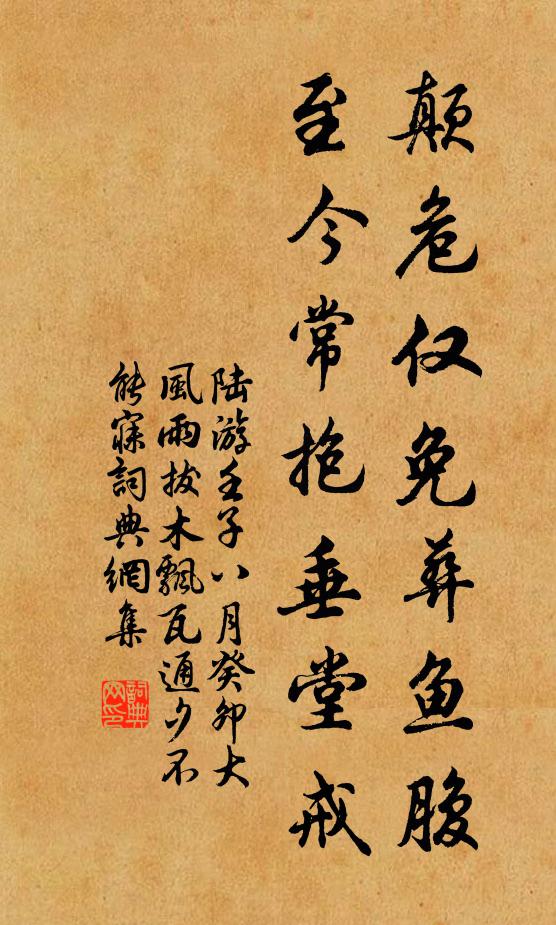 颠危仅免葬鱼腹
至今常抱垂堂戒
陆游壬子八月癸卯大
風雨拔木飄瓦通夕不
能寐詞典網集
詞典
网印